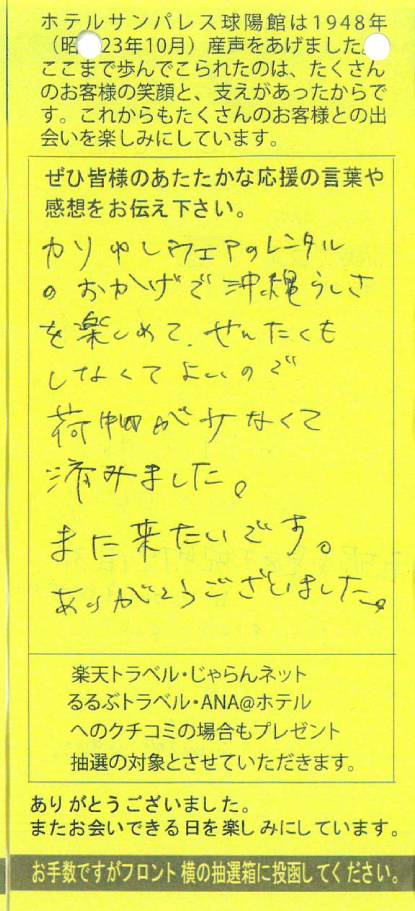 ホテルサンパレス球陽館は1948年
（昭 23年10月）産声をあげました。
ここまで歩んでこられたのは、たくさん
のお客様の笑顔と、支えがあったからで
す。これからもたくさんのお客様との出
会いを楽しみにしています。
ぜひ皆様のあたたかな応援の言葉や
感想をお伝え下さい。
かりゆしウェアのレンタル
のおかげで沖縄らしさ
を楽しめて、せんたくも
しなくてよいので
荷物が少なくて
済みました。
また来たいです。
ありがとうございました。
楽天トラベル・じゃらんネット
るるぶトラベル・ANA@ホテル
へのクチコミの場合もプレゼント
抽選の対象とさせていただきます。
ありがとうございました。
またお会いできる日を楽しみにしています。
お手数ですがフロント横の抽選箱に投函してください。